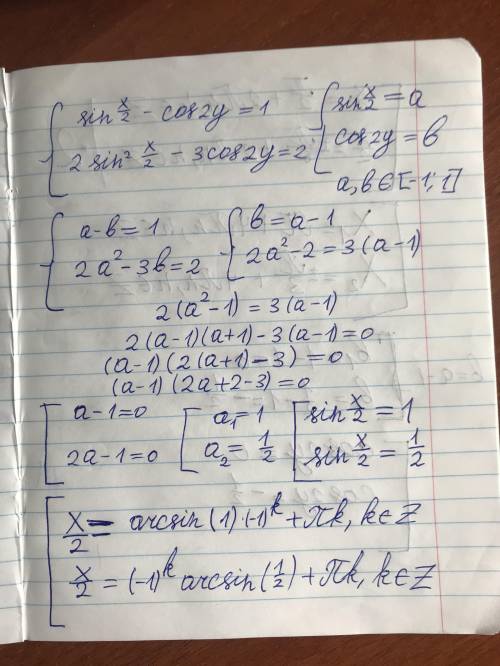 sin x/2 - cos2y = 1 sin x/2 = a
2 sin² x/2 - 3cos2y = 2 cos2y = b
a, b ∈ [-1; 1]
a - b = 1 b = a - 1
2a² - 3b = 2 2a² - 2 = 3(a - 1)
2(a² - 1) = 3(a - 1)
2(a - 1)(a + 1) - 3(a - 1) = 0
(a - 1)(2(a + 1) - 3) = 0
(a - 1)(2a + 2 - 3) = 0
a - 1 = 0 a₁ = 1 sin x/2 = 1
2a - 1 = 0 a₂ = 1/2 sin x/2 = 1/2
x/2 = arcsin(1)·(-1)^k + πk, k ∈ Z
x/2 = (-1)^k arcsin(1/2) + πk, k ∈ Z